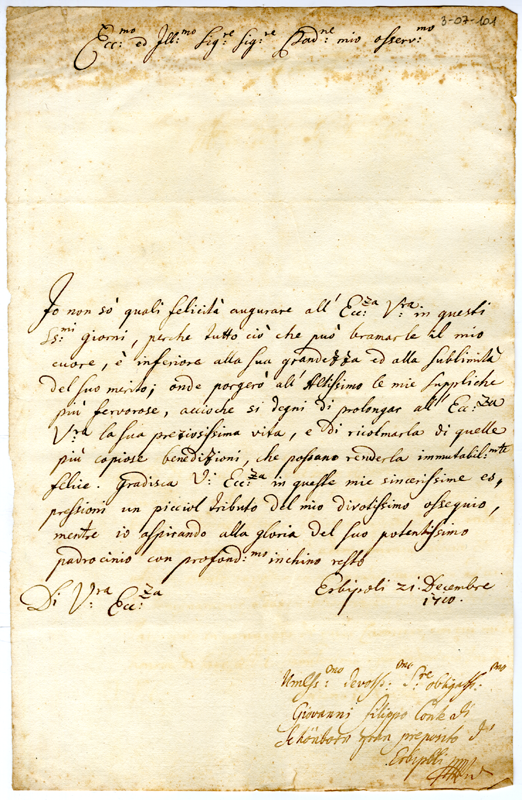 3-07-101
Ecc:mo ed Ill:mo Sig:re Sig:re Padne mio osserv:mo
Io non sò quali felicità augurare all' Ecc:za V:ra in questi
Ss:mi giorni, perche tutto ciò che può bramarle il mio
cuore, è inferiore alla sua grandezza ed alla sublimità
del suo merito; onde porgerò all' Altissimo le mie suppliche
più fervorose, accioche si degni di prolongar all' Ecc:za
V:ra la sua preziosissima vita, e di ricolmarla di quelle
più copiose benedizioni, che possano renderla immutabil:nte
felice. Gradisca V: Ecc:za in queste mie sincerissime es,
pressioni un picciol tributo del mio divotissimo ossequio,
mentre io aspirando alla gloria del suo potentissimo
padrocinio con profond:mo inchino resto
Di V:ra Ecc:za
Erbipoli 21. Decembre
1710.
Umlss:mo devoss:mo S:re obligass:mo
Giovanni Filippo Conte di
Schönborn gran preposto di
Erbipoli